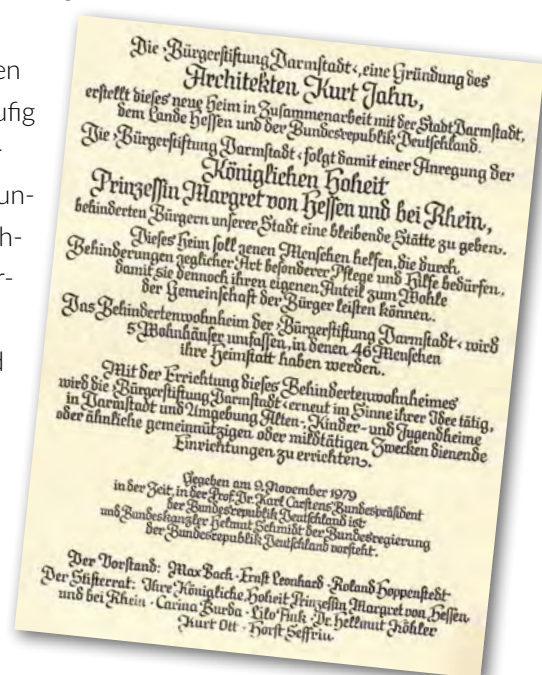 en
ufig
un-
h-
r-
d
Die ›Bürgerstiftung Darmstadt‹, eine Gründung des
Architekten Kurt Jahn,
erstellt dieses neue Heim in Zusammenarbeit mit der Stadt Darmstadt,
dem Lande Hessen und der Bundesrepublik Deutschland.
Die ›Bürgerstiftung Darmstadt‹ folgt damit einer Anregung der
Königlichen Hoheit
Prinzessin Margret von Hessen und bei Rhein,
behinderten Bürgern unserer Stadt eine bleibende Stätte zu geben.
Dieses Heim soll jenen Menschen helfen, die durch
Behinderungen jeglicher Art besonderer Pflege und Hilfe bedürfen,
damit sie dennoch ihren eigenen Anteil zum Wohle
der Gemeinschaft der Bürger leisten können.
Das Behindertenwohnheim der ›Bürgerstiftung Darmstadt‹ wird
5 Wohnhäuser umfassen, in denen 46 Menschen
ihre Heimstatt haben werden.
Mit der Errichtung dieses Behindertenwohnheimes
wird die ›Bürgerstiftung Darmstadt‹ erneut im Sinne ihrer Idee tätig,
in Darmstadt und Umgebung Alten-, Kinder- und Jugendheime
oder ähnliche gemeinnützigen oder mildtätigen Zwecken dienende
Einrichtungen zu errichten.
Gegeben am 9. November 1979
in der Zeit, in der Prof. Dr. Karl Carstens Bundespräsident
der Bundesrepublik Deutschland ist
und Bundeskanzler Helmut Schmidt der Bundesregierung
der Bundesrepublik Deutschland vorsteht.
Der Vorstand: Max Bach · Ernst Leonhard · Roland Hoppenstedt
Der Stifterrat: Ihre Königliche Hoheit Prinzessin Margret von Hessen
und bei Rhein · Carina Burda · Lilo Fink · Dr. Hellmut Köhler
Kurt Ott · Horst Seffrin